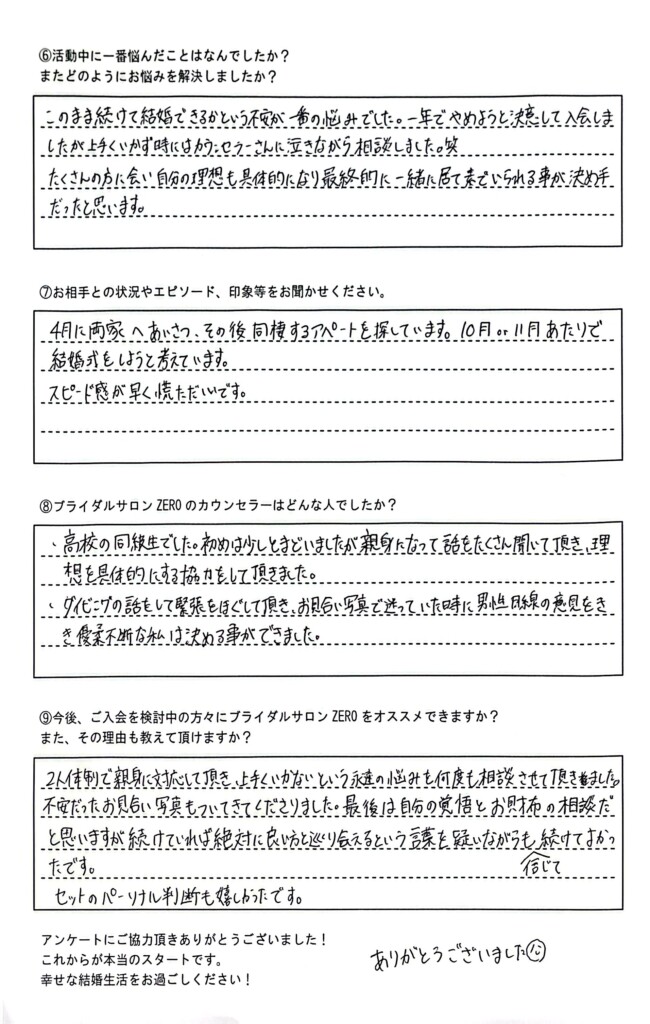 ⑥活動中に一番悩んだことはなんでしたか？
またどのようにお悩みを解決しましたか？
このまま続けて結婚できるかという不安が一番の悩みでした。一年でやめようと決意して入会しま
したが上手くいかず時にはカウンセラーさんに泣きながら相談しました。笑
たくさんの方に会い自分の理想も具体的になり最終的に一緒に居て素でいられる事が決め手
だったと思います。
⑦お相手との状況やエピソード、印象等をお聞かせください。
4月に両家へあいさつ、その後同棲するアパートを探しています。10月or11月あたりで
結婚式をしようと考えています。
スピード感が早く慌ただいです。
⑧ブライダルサロンZEROのカウンセラーはどんな人でしたか？
・高校の同級生でした。初めは少しとまどいましたが親身になって話をたくさん聞いて頂き、理
想を具体的にする協力をして頂きました。
・ダイビングの話をして緊張をほぐして頂き、お見合い写真で迷っていた時に男性目線の意見をき
き優柔不断な私は決める事ができました。
⑨今後、ご入会を検討中の方々にブライダルサロンZEROをオススメできますか？
また、その理由も教えて頂けますか？
2人体制で親身に対応して頂き、上手くいかないという永遠の悩みも何度も相談させて頂きました。
不安だったお見合い写真もついてきてくださりました。最後は自分の覚悟とお財布の相談だ
と思いますが続けていれば絶対に良い方と巡り会えるという言葉を疑いながらも信じて続けてよかっ
たです。
セットのパーソナル判断も嬉しかったです。
アンケートにご協力頂きありがとうございました！
これからが本当のスタートです。
幸せな結婚生活をお過ごしください！
ありがとうございました